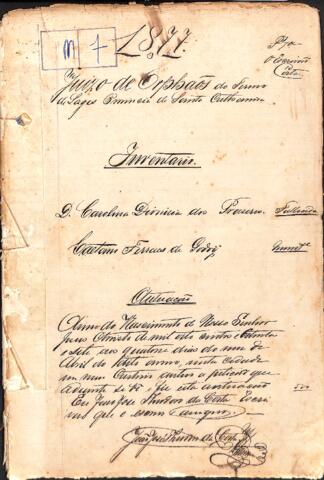 M 7
1877.
Pg. o
O Escrivão
Costa
Juizo de Orphãos do Termo
de Lages Provincia de Santa Catharina
Inventario.
D. Carolina Dionizia dos Prazeres. Fallecida
Caetano Ferraes de Godoy Invent.e
Autuação
Anno do Nascimento de Nosso Senhor
Jesus Christo de mil oito centos e setenta
e sete aos quatorze dias do mes de
Abril do dito anno, nesta cidade
em meu Cartorio autuo a petição que
adiante se vê, e fiz esta autuação
Eu João José da Costa Escri
vão que o escrevi e assigno.
João José da Costa